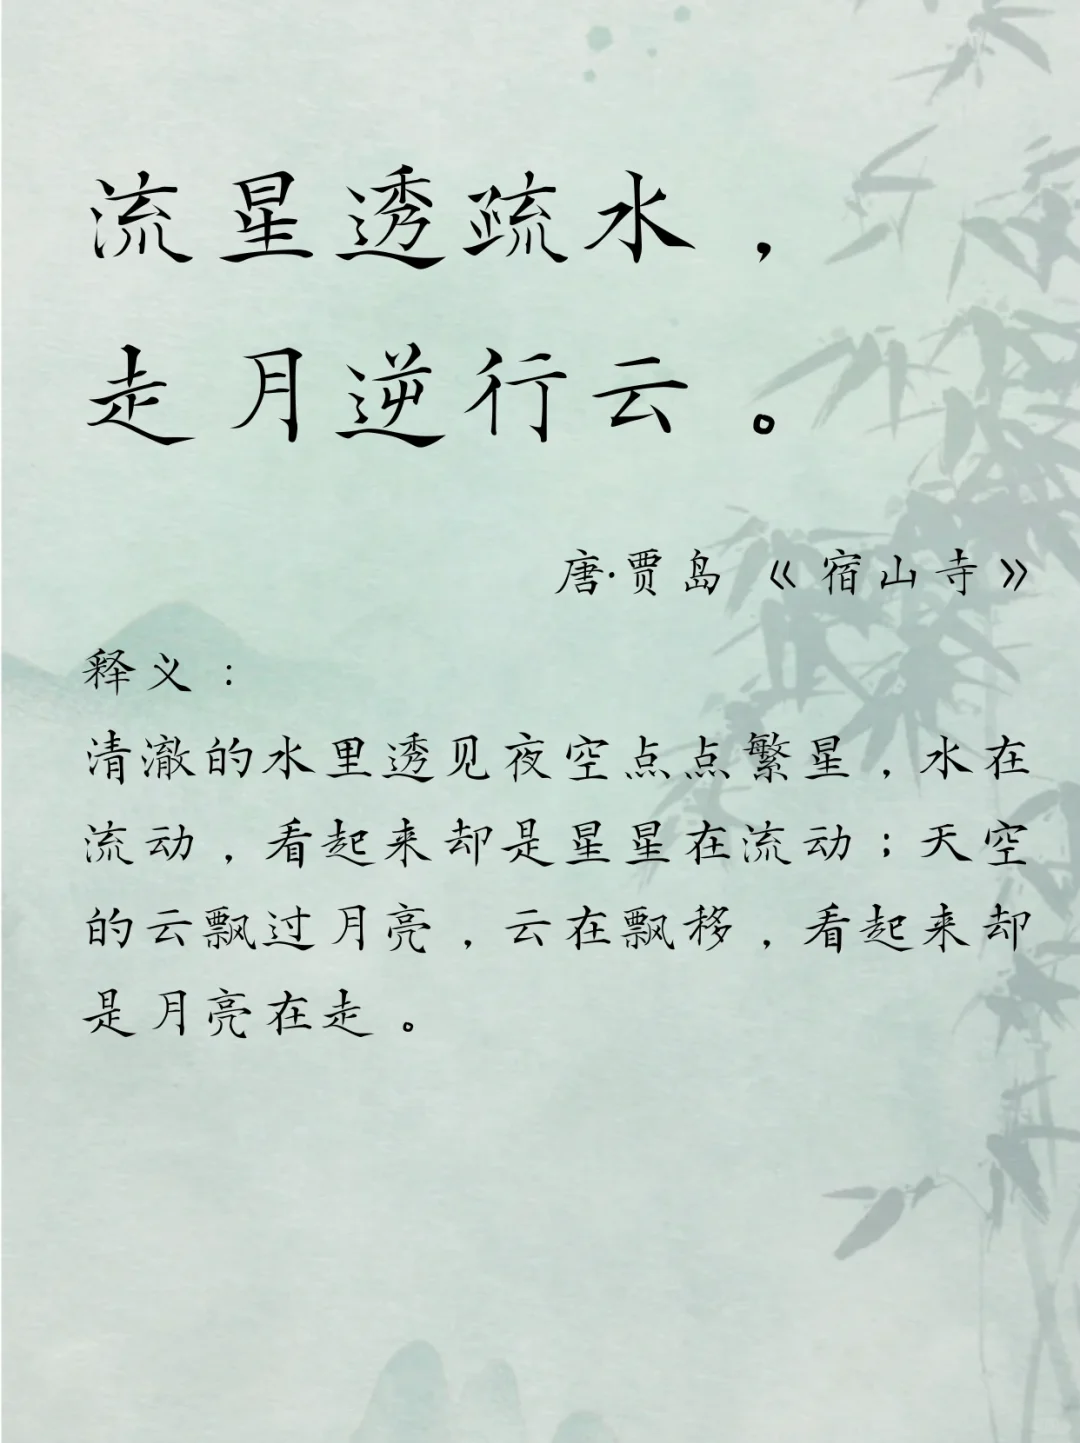 流星透疏水，
走月逆行云。
唐·贾岛《宿山寺》
释义：
清澈的水里透见夜空点点繁星，水在
流动，看起来却是星星在流动；天空
的云飘过月亮，云在飘移，看起来却
是月亮在走。